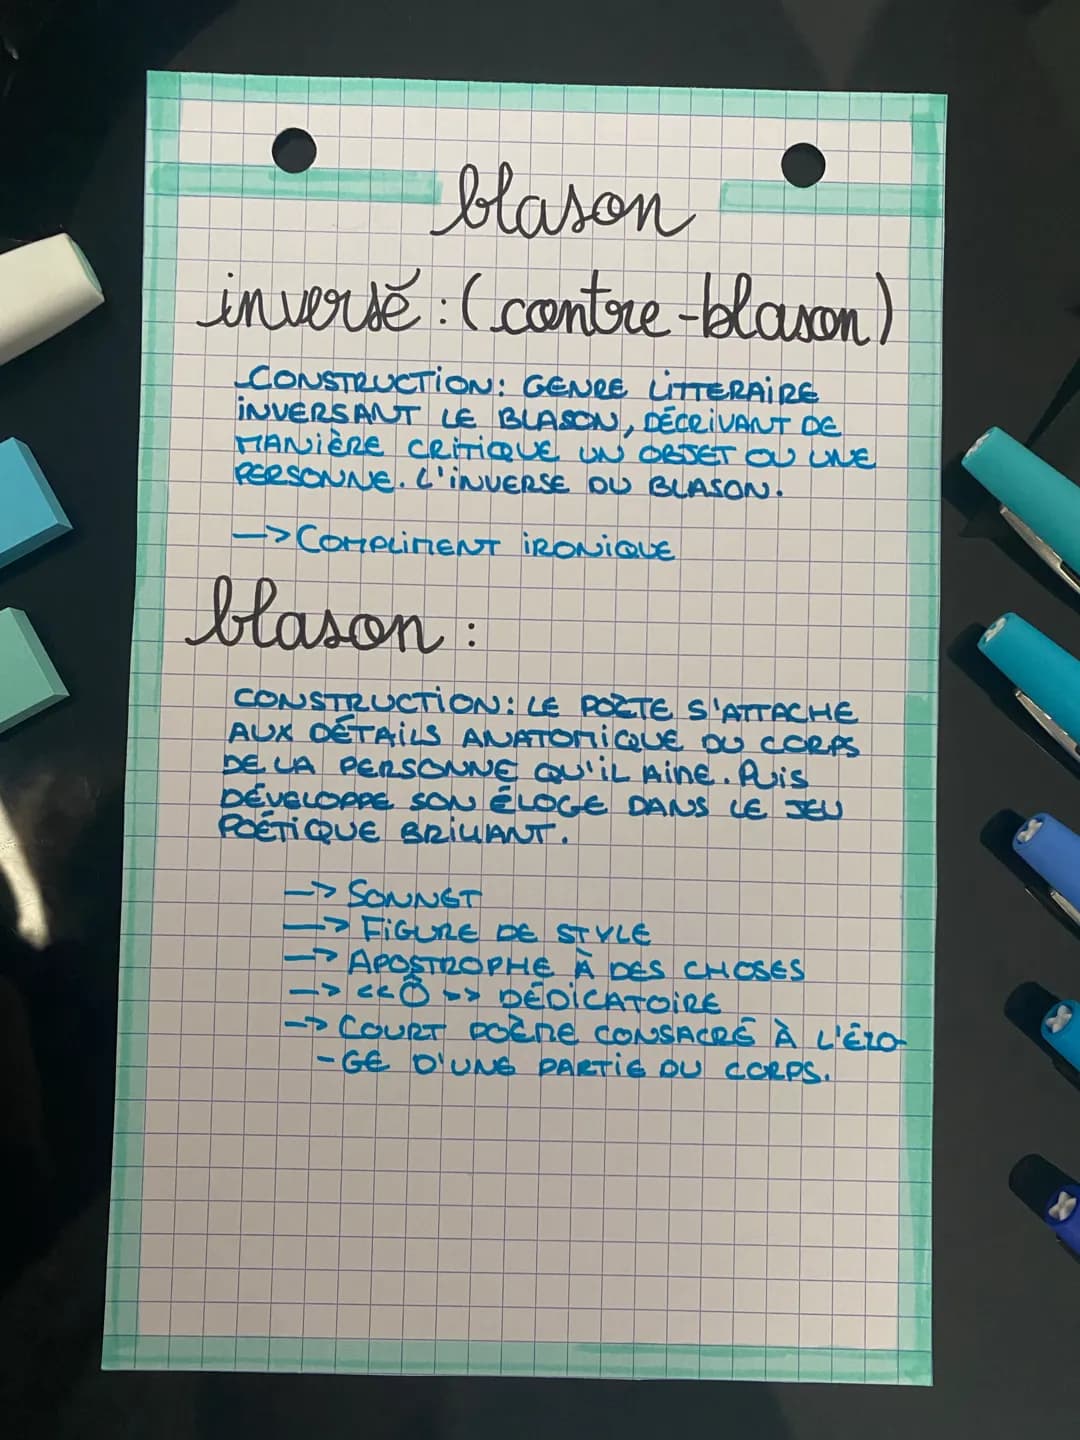 blason
inversé : (contre-blason)
CONSTRUCTION: GENRE LITTERAIRE
INVERSANT LE BLASON, DÉCRIVANT DE
MANIÈRE CRITIQUE UN OBJET OU UNE
PERSONNE. L'INVERSE DU BLASON.
-> COMPLIMENT IRONIQUE
blason :
CONSTRUCTION: LE POÈTE S'ATTACHE
AUX DÉTAILS ANATOMIQUE DU CORPS
DE LA PERSONNE QU'IL AIME. PUIS
DÉVELOPPE SON ÉLOGE DANS LE JEU
POÉTIQUE BRILLANT.
-> SONNET
-> FIGURE DE STYLE
-> APOSTROPHE À DES CHOSES
-> << Ô >> DÉDICATOIRE
-> COURT POÈME CONSACRÉ À L'ÉLO-
-GE D'UNE PARTIE DU CORPS.